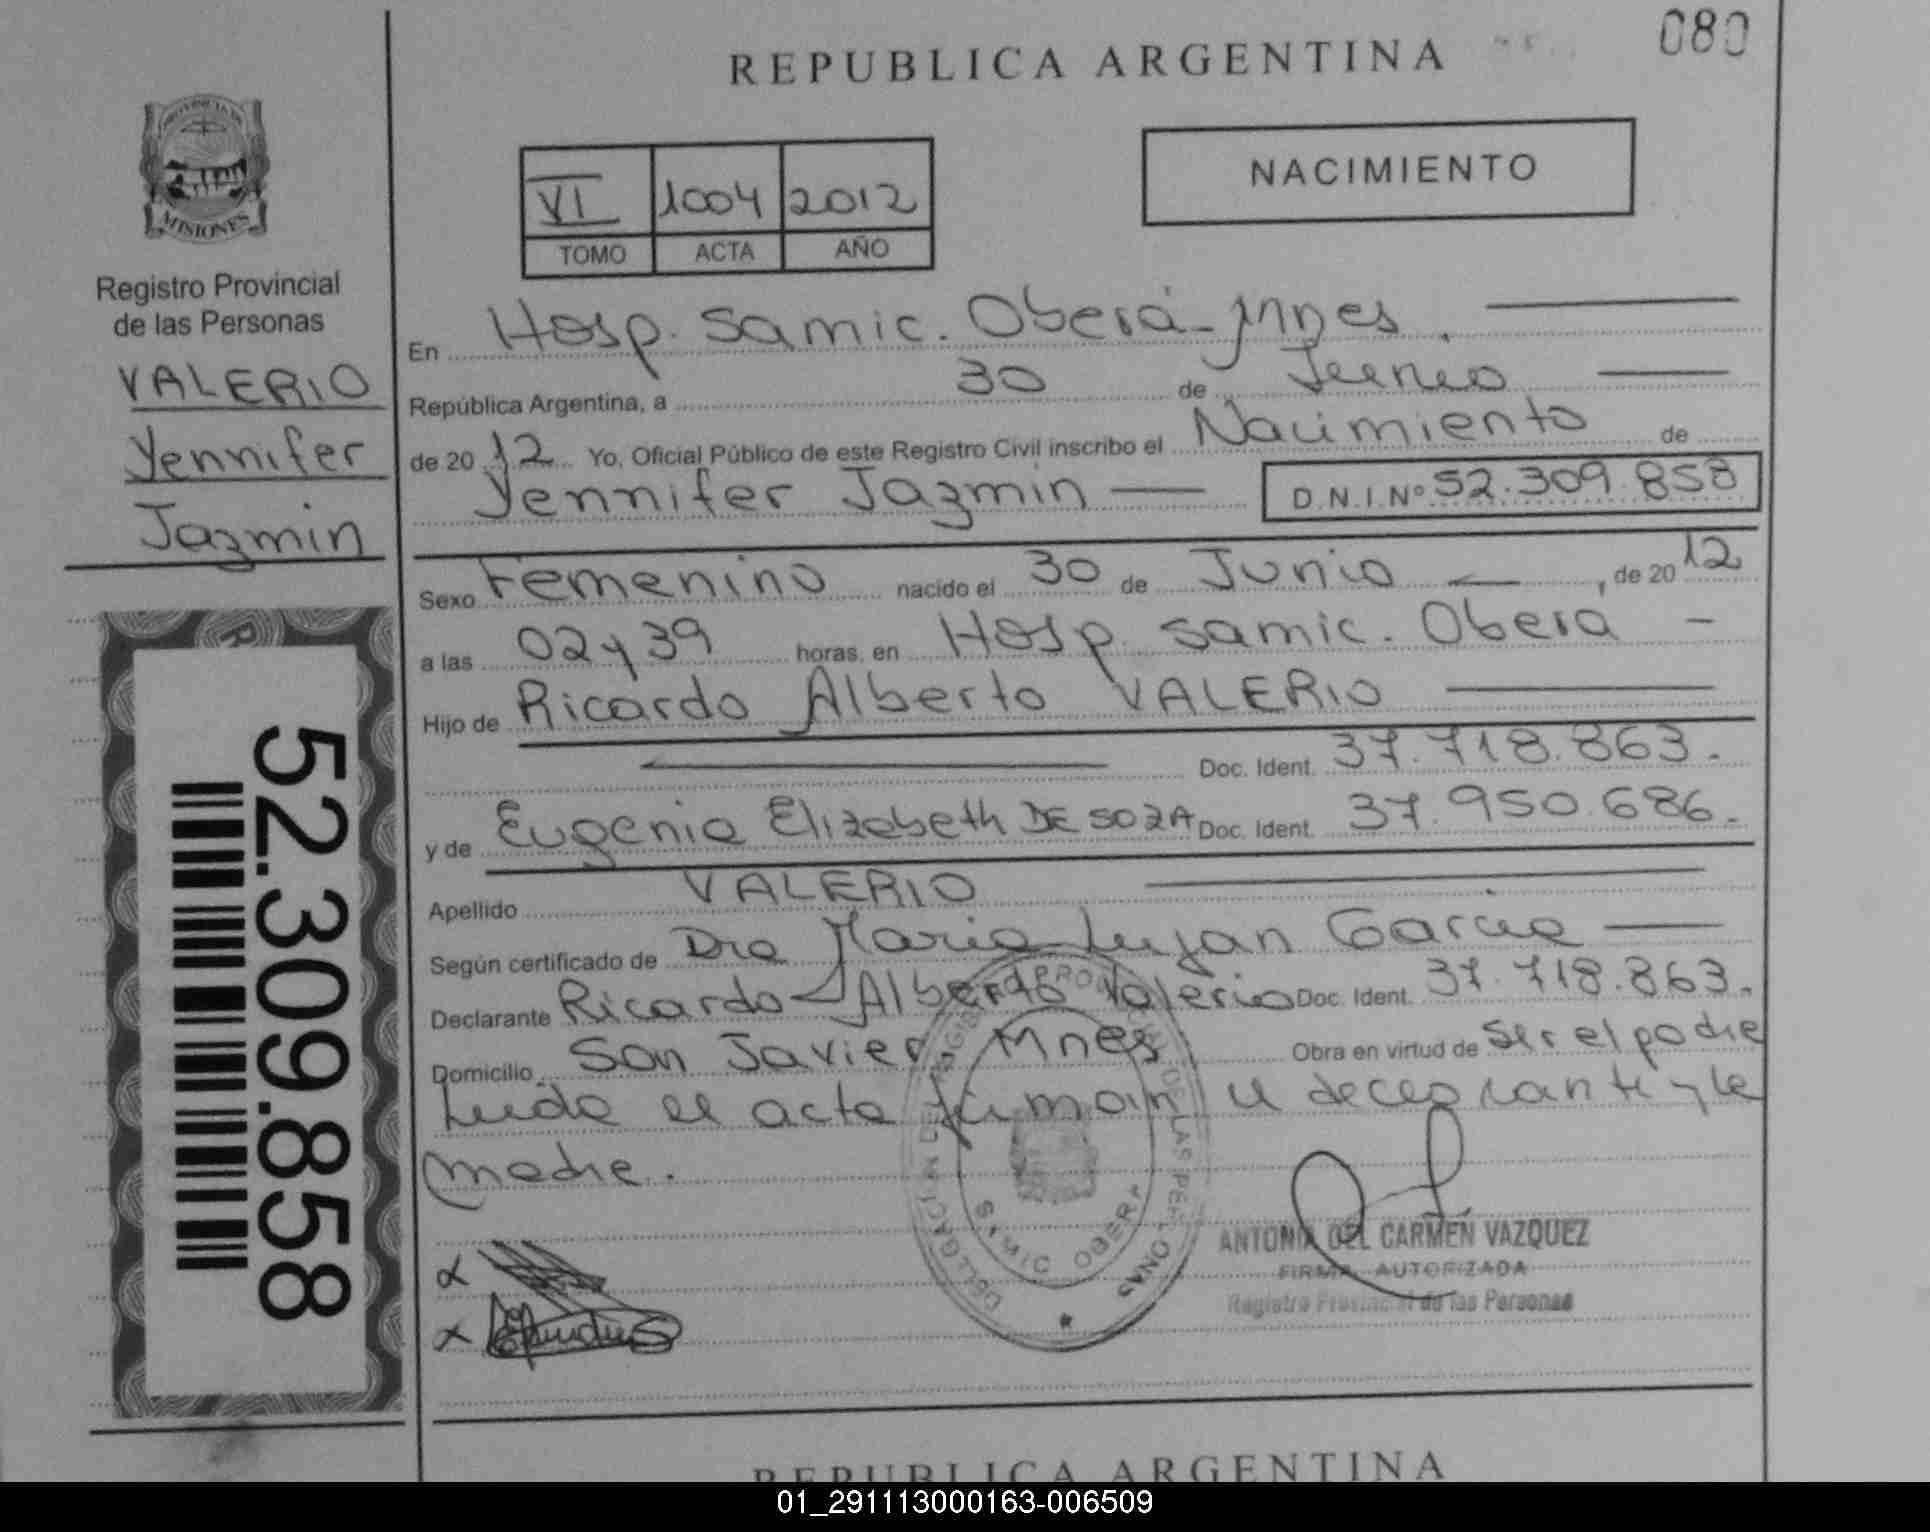 080
REPUBLICA ARGENTINA
NACIMIENTO
VI 1004 2012
TOMO ACTA AÑO
PROVINCIA DE
MISIONES
Registro Provincial
de las Personas
VALERIO
Yennifer
Jazmin
52.309.858
En Hosp. Samic. Oberá - Mnes.
República Argentina, a 30 de Junio
de 2012 Yo, Oficial Público de este Registro Civil inscribo el Nacimiento de
Yennifer Jazmin D.N.I.Nº 52.309.858
Sexo Femenino nacido el 30 de Junio, de 2012
a las 02 y 39 horas, en Hosp. Samic. Oberá
Hijo de Ricardo Alberto VALERIO
Doc. Ident. 37.718.863.
y de Eugenia Elizabeth DE SOZA Doc. Ident. 37.950.686.
Apellido VALERIO
Según certificado de Dra Maria Lujan Garcia
Declarante Ricardo Alberto Valerio Doc. Ident. 37.718.863.
Domicilio San Javier Mnes Obra en virtud de ser el padre
Leida el acta firman el declarante y la
madre.
SAMIC OBERA
ANTONIA DEL CARMEN VAZQUEZ
FIRMA AUTORIZADA
Registro Provincial de las Personas
REPUBLICA ARGENTINA
01_291113000163-006509